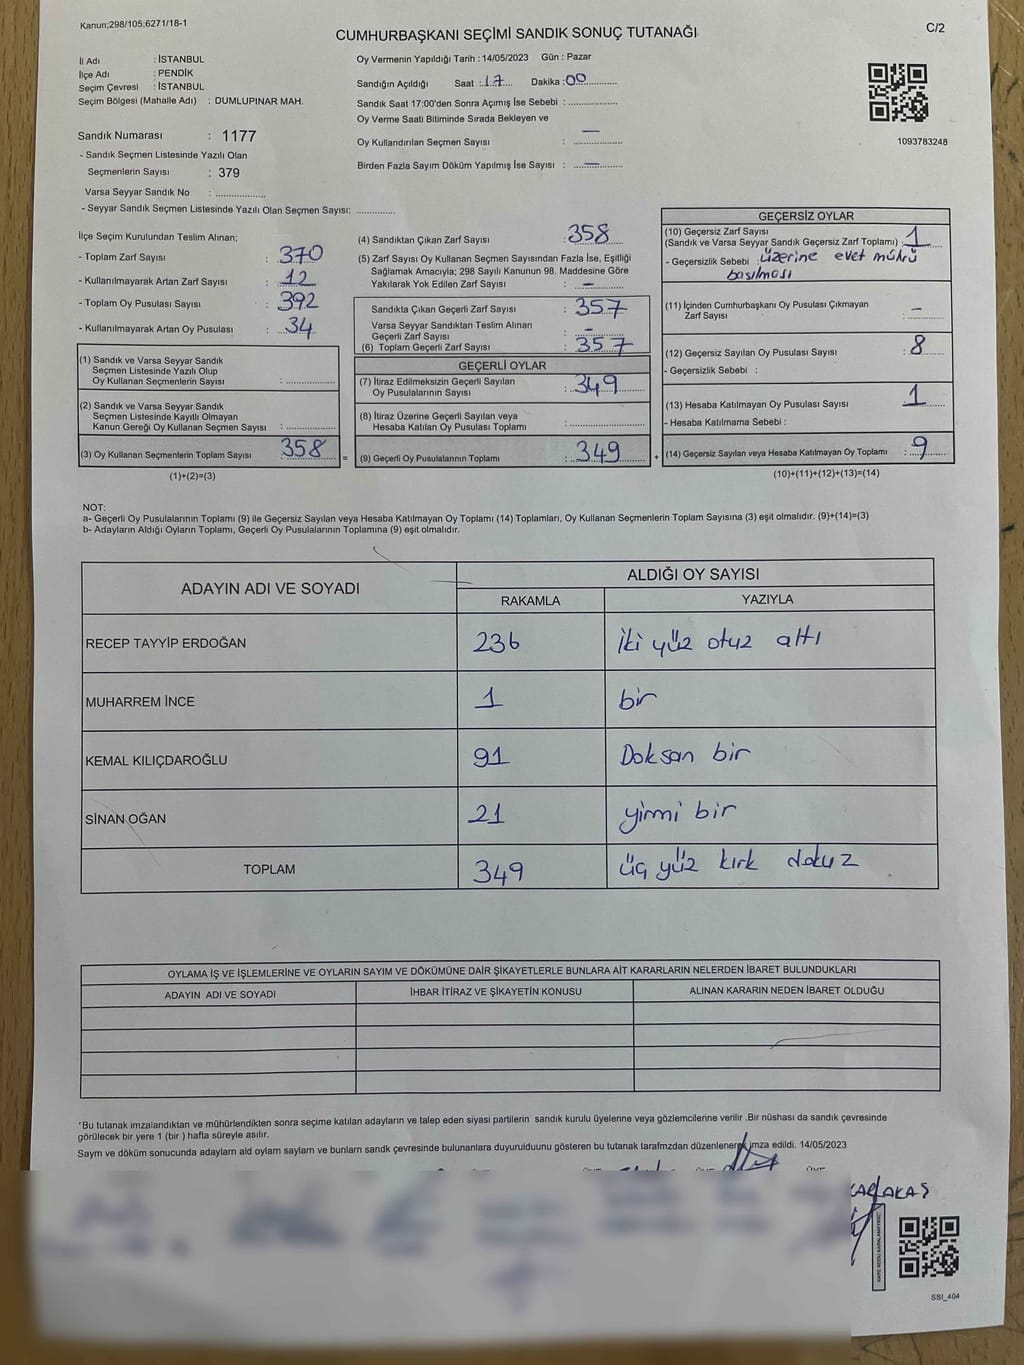 Kanun;298/105;6271/18-1
CUMHURBAŞKANI SEÇİMİ SANDIK SONUÇ TUTANAĞI
C/2
İl Adı : İSTANBUL
İlçe Adı : PENDİK
Seçim Çevresi : İSTANBUL
Seçim Bölgesi (Mahalle Adı) : DUMLUPINAR MAH.
Oy Vermenin Yapıldığı Tarih : 14/05/2023 Gün : Pazar
Sandığın Açıldığı Saat : 17 Dakika : 00
Sandık Saat 17:00'den Sonra Açımış İse Sebebi :
Oy Verme Saati Bitiminde Sırada Bekleyen ve
Oy Kullandırılan Seçmen Sayısı : —
Birden Fazla Sayım Döküm Yapılmış İse Sayısı : —
1093783248
Sandık Numarası : 1177
- Sandık Seçmen Listesinde Yazılı Olan
Seçmenlerin Sayısı : 379
Varsa Seyyar Sandık No :
- Seyyar Sandık Seçmen Listesinde Yazılı Olan Seçmen Sayısı:
İlçe Seçim Kurulundan Teslim Alınan;
- Toplam Zarf Sayısı : 370
- Kullanılmayarak Artan Zarf Sayısı : 12
- Toplam Oy Pusulası Sayısı : 392
- Kullanılmayarak Artan Oy Pusulası : 34
(1) Sandık ve Varsa Seyyar Sandık
Seçmen Listesinde Yazılı Olup
Oy Kullanan Seçmenlerin Sayısı :
(2) Sandık ve Varsa Seyyar Sandık
Seçmen Listesinde Kayıtlı Olmayan
Kanun Gereği Oy Kullanan Seçmen Sayısı :
(3) Oy Kullanan Seçmenlerin Toplam Sayısı 358
(1)+(2)=(3)
(4) Sandıktan Çıkan Zarf Sayısı : 358
(5) Zarf Sayısı Oy Kullanan Seçmen Sayısından Fazla İse, Eşitliği
Sağlamak Amacıyla; 298 Sayılı Kanunun 98. Maddesine Göre
Yakılarak Yok Edilen Zarf Sayısı : —
Sandıkta Çıkan Geçerli Zarf Sayısı : 357
Varsa Seyyar Sandıktan Teslim Alınan
Geçerli Zarf Sayısı : —
(6) Toplam Geçerli Zarf Sayısı : 357
GEÇERLİ OYLAR
(7) İtiraz Edilmeksizin Geçerli Sayılan
Oy Pusulalarının Sayısı : 349
(8) İtiraz Üzerine Geçerli Sayılan veya
Hesaba Katılan Oy Pusulası Toplamı :
= (9) Geçerli Oy Pusulalarının Toplamı : 349 +
GEÇERSİZ OYLAR
(10) Geçersiz Zarf Sayısı
(Sandık ve Varsa Seyyar Sandık Geçersiz Zarf Toplamı) : 1
- Geçersizlik Sebebi : üzerine evet mührü
basılması
(11) İçinden Cumhurbaşkanı Oy Pusulası Çıkmayan
Zarf Sayısı : —
(12) Geçersiz Sayılan Oy Pusulası Sayısı : 8
- Geçersizlik Sebebi :
(13) Hesaba Katılmayan Oy Pusulası Sayısı : 1
- Hesaba Katılmama Sebebi :
(14) Geçersiz Sayılan veya Hesaba Katılmayan Oy Toplamı : 9
(10)+(11)+(12)+(13)=(14)
NOT:
a- Geçerli Oy Pusulalarının Toplamı (9) ile Geçersiz Sayılan veya Hesaba Katılmayan Oy Toplamı (14) Toplamları, Oy Kullanan Seçmenlerin Toplam Sayısına (3) eşit olmalıdır. (9)+(14)=(3)
b- Adayların Aldığı Oyların Toplamı, Geçerli Oy Pusulalarının Toplamına (9) eşit olmalıdır.
ADAYIN ADI VE SOYADI
ALDIĞI OY SAYISI
RAKAMLA YAZIYLA
RECEP TAYYİP ERDOĞAN 236 iki yüz otuz altı
MUHARREM İNCE 1 bir
KEMAL KILIÇDAROĞLU 91 Doksan bir
SİNAN OĞAN 21 yirmi bir
TOPLAM 349 üç yüz kırk dokuz
OYLAMA İŞ VE İŞLEMLERİNE VE OYLARIN SAYIM VE DÖKÜMÜNE DAİR ŞİKAYETLERLE BUNLARA AİT KARARLARIN NELERDEN İBARET BULUNDUKLARI
ADAYIN ADI VE SOYADI İHBAR İTİRAZ VE ŞİKAYETİN KONUSU ALINAN KARARIN NEDEN İBARET OLDUĞU
*Bu tutanak imzalandıktan ve mühürlendikten sonra seçime katılan adayların ve talep eden siyasi partilerin sandık kurulu üyelerine veya gözlemcilerine verilir .Bir nüshası da sandık çevresinde
görülecek bir yere 1 (bir ) hafta süreyle asılır.
Sayım ve döküm sonucunda adayların ald oyların sayların ve bunların sandk çevresinde bulunanlara duyurulduunu gösteren bu tutanak tarafmzdan düzenlenerek imza edildi. 14/05/2023
SSI_404